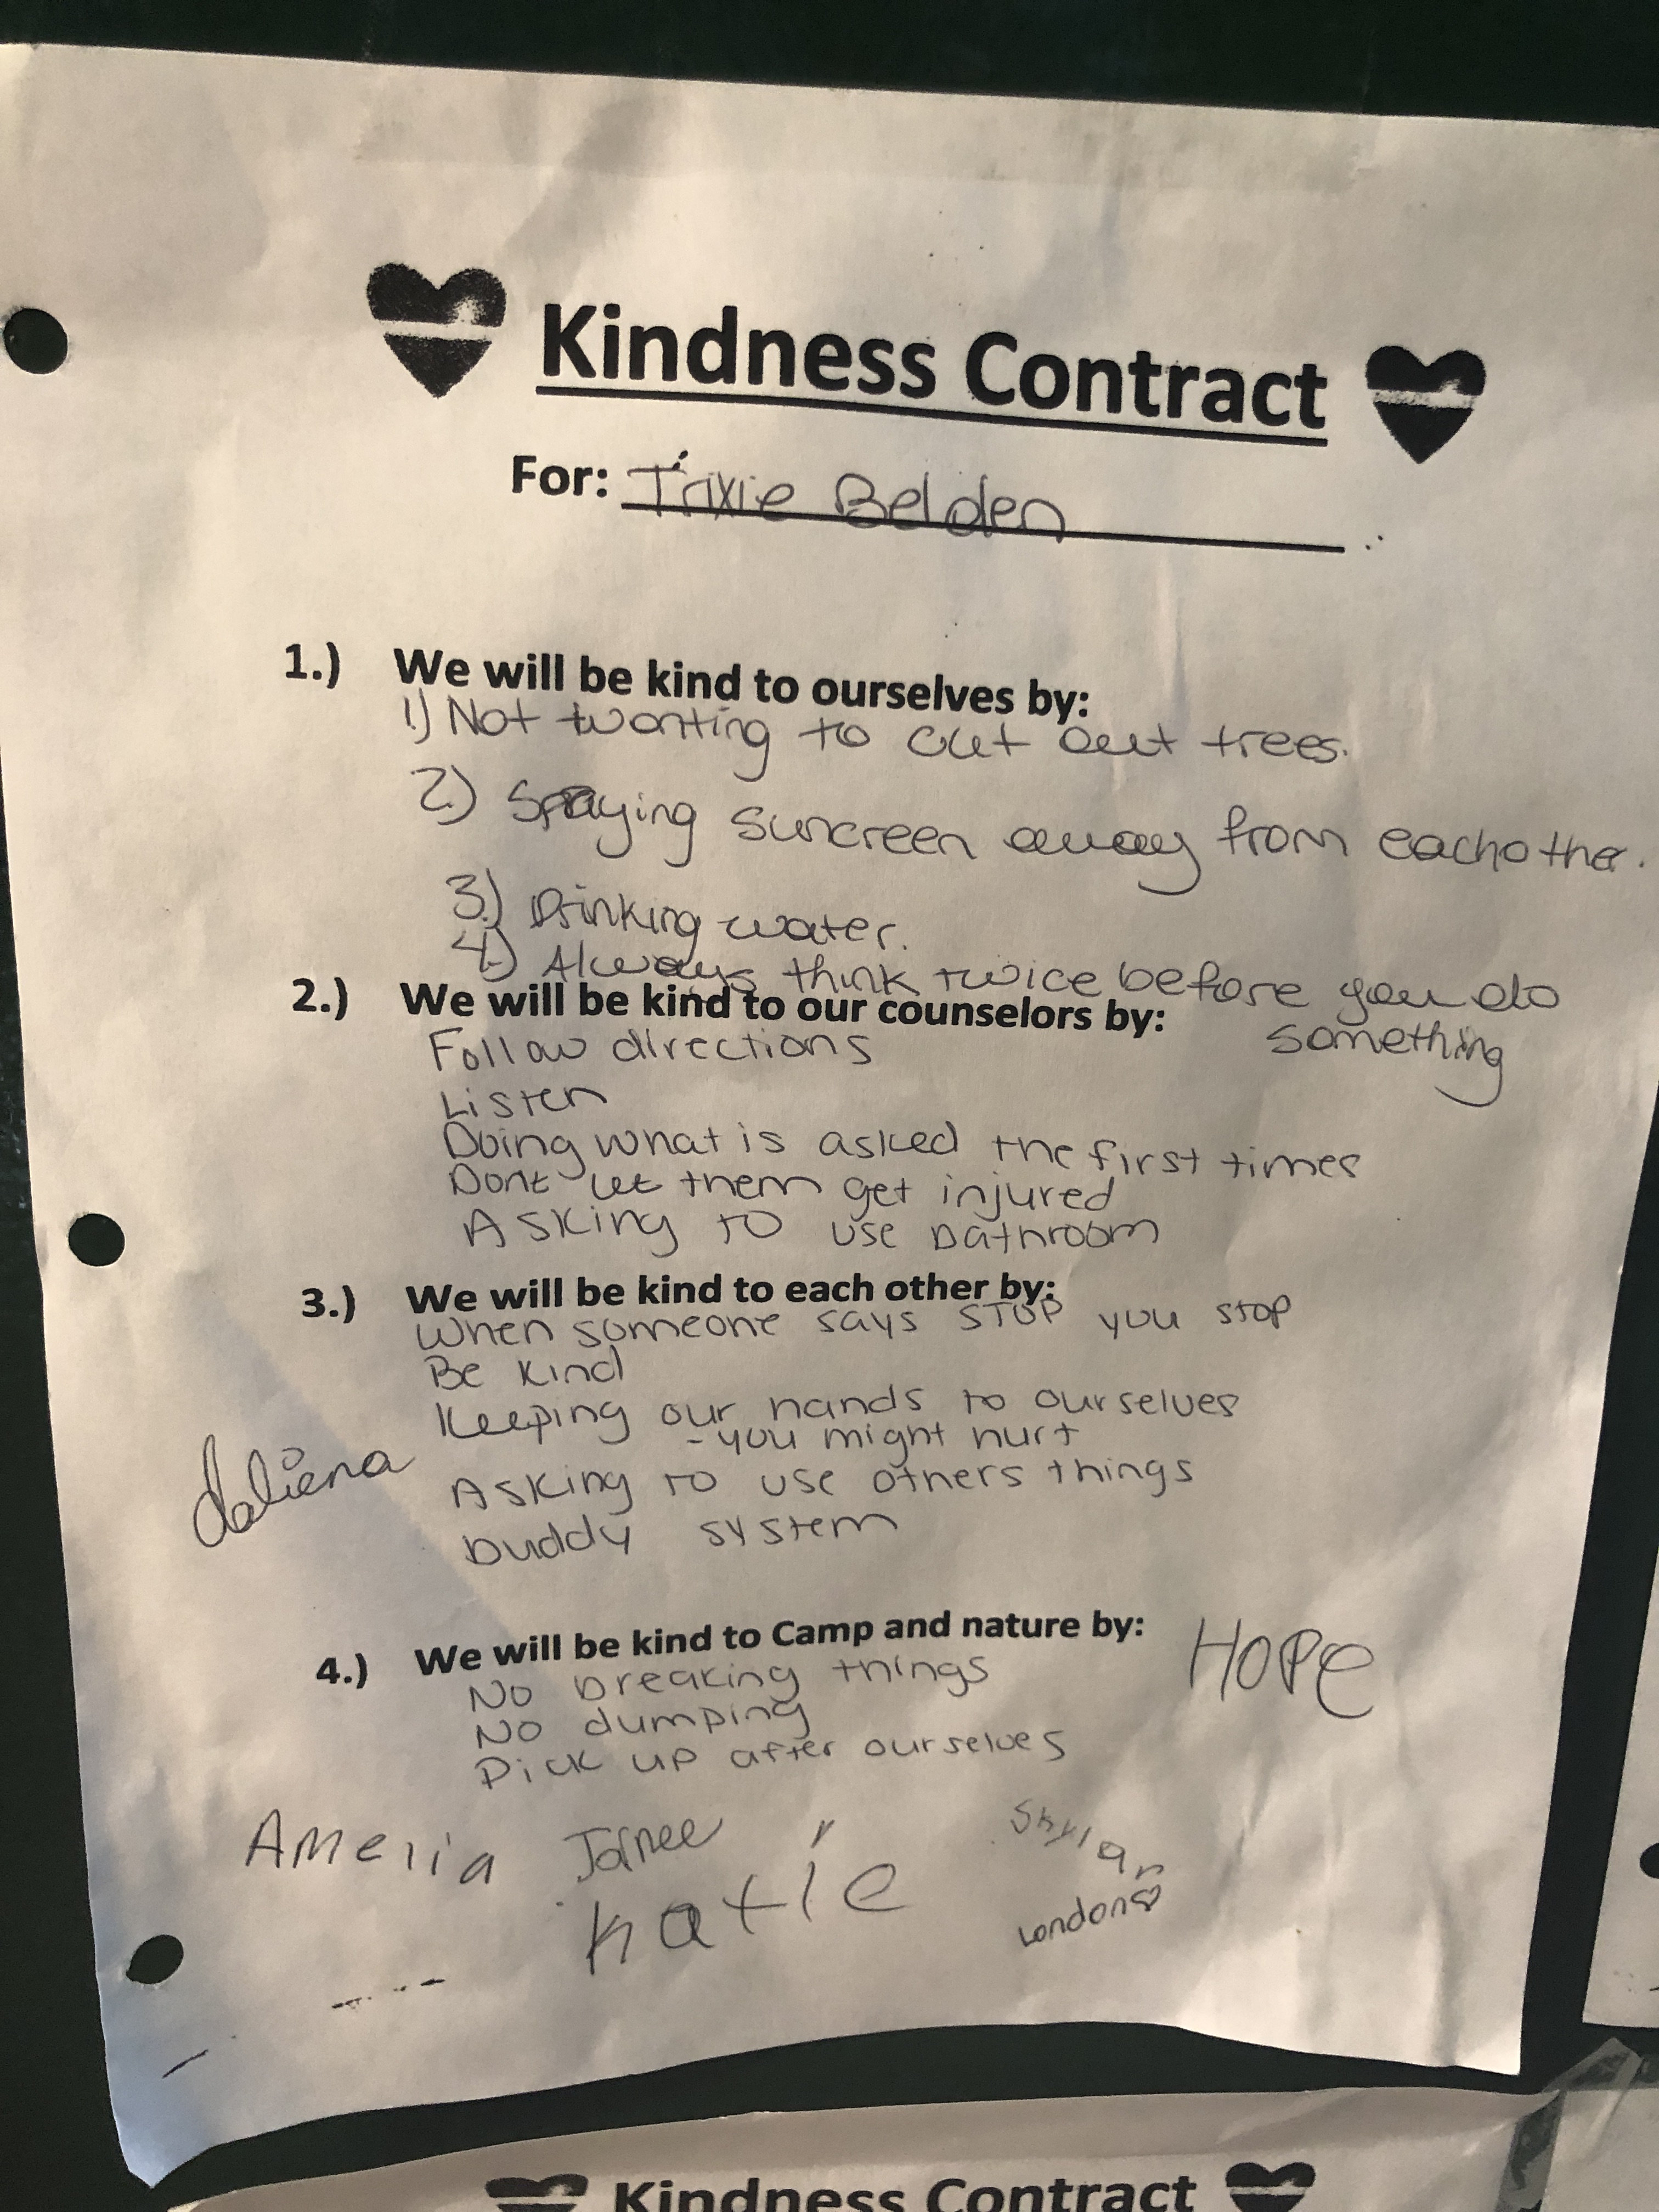 Kindness Contract
For: Trixie Belden
1.) We will be kind to ourselves by:
1) Not wanting to cut out trees.
2) Spraying suncreen away from eachother.
3.) Drinking water.
4.) Always think twice before you do
something
2.) We will be kind to our counselors by:
Follow directions
Listen
Doing what is asked the first times
Dont let them get injured
Asking to use bathroom
3.) We will be kind to each other by:
When someone says STOP you stop
Be kind
Keeping our hands to ourselves
-you might hurt
Asking to use others things
buddy system
4.) We will be kind to Camp and nature by:
No breaking things
No dumping
Pick up after ourselves
HOPE
Amelia
Katie
Skylar
London
Kindness Contract